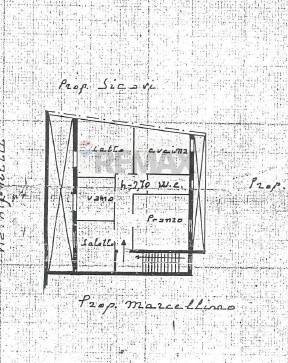 Prop. Sicari
letto cucina
RE/MAX
h=2,70 W.C.
vano
Prop.
Pranzo
Salotto
Prop. Marcellino